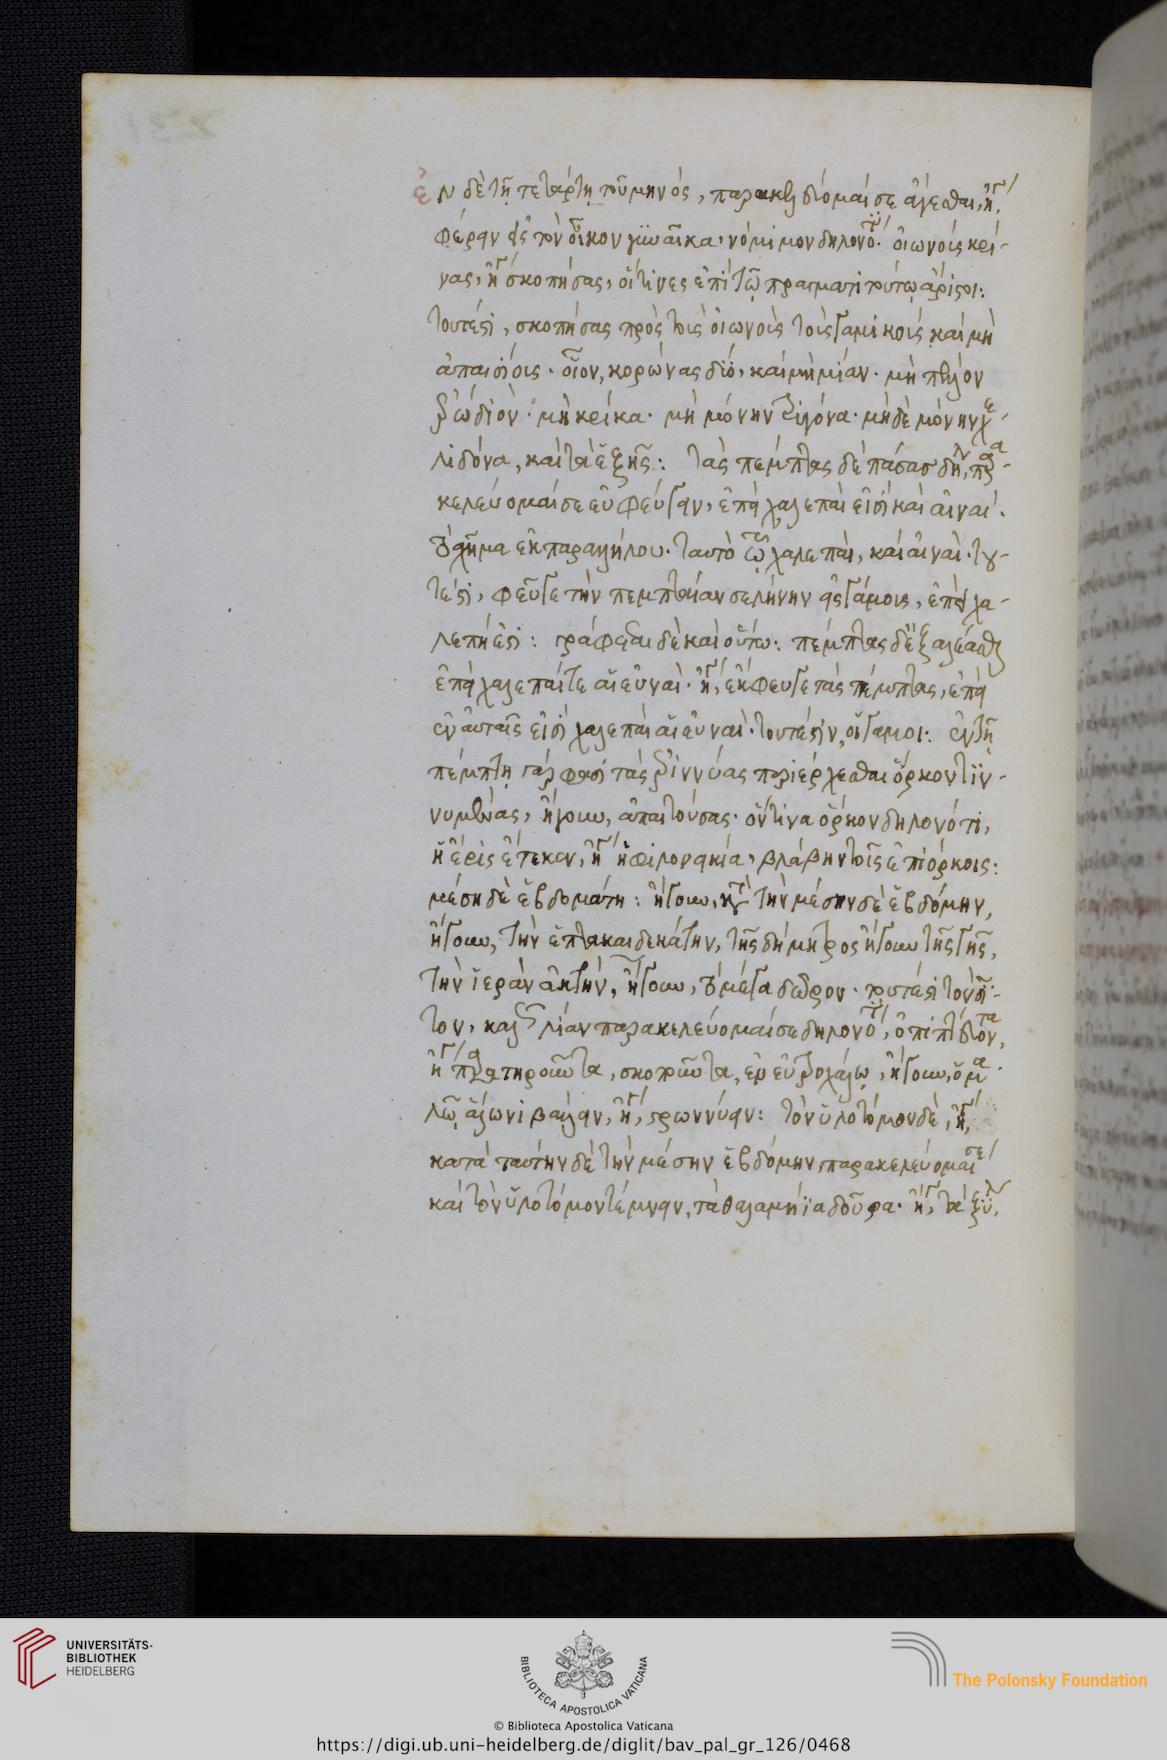 ἐν δὲ τῇ τετάρτῃ τοῦ μηνός, παρακελεύομαί σε ἄγεσθαι, ἢ,
φέρειν εἰς τὸν οἶκον γυναῖκα, νόμιμον δηλονότι· οἰωνοὺς κρί-
νας, ἢ σκοπήσας, οἵτινες ἐπὶ τῷ πράγματι τούτῳ ἄριστοι:
τουτέστι, σκοπήσας πρὸς τοὺς οἰωνοὺς τοὺς γαμικοὺς καὶ μὴ
ἀπαισίοις· οἷον, κορώνας δύο, καὶ μὴ μίαν· μὴ πάλιν
ἐρωδιὸν· μὴ κρίκα· μὴ μόνην τρυγόνα· μὴ δὲ μόνην χε-
λιδόνα, καὶ τὰ ἑξῆς: τὰς πέμπτας δὲ πάσας δηλ, παρα-
κελεύομαί σε ἐκφεύγειν, ἐπεὶ χαλεπαὶ εἰσὶ καὶ αἰναί.
τὸ σχῆμα ἐκ παραλλήλου· ταυτὸ τῷ χαλεπαὶ, καὶ αἰναὶ· του-
τέστι, φεῦγε τὴν πεμπταίαν σελήνην εἰς γάμους, ἐπεὶ χα-
λεπή ἐστι: γράφεται δὲ καὶ οὕτω: πέμπτας δ' ἐξαλέασθαι
ἐπεὶ χαλεπαί τε αἱ εὐναὶ· ἢ, ἔκφευγε τὰς πέμπτας, ἐπεὶ
ἐν αὐταῖς εἰσὶ χαλεπαὶ αἱ εὐναὶ· τουτέστιν, οἱ γάμοι: ἐν τῇ
πέμπτῃ γάρ φασι τὰς ἐριννύας περιέρχεσθαι ὅρκον τιν-
νυμένας, ἤγουν, ἀπαιτούσας· ὅντινα ὅρκον δηλονότι,
ἡ ἔρις ἔτεκεν, ἢ ἡ φιλονεικία, βλάβην τοῖς ἐπιόρκοις:
μέση δὲ ἑβδομάτη: ἤγουν, κατὰ τὴν μέσην δὲ ἑβδόμην,
ἤγουν, τὴν ἑπτακαιδεκάτην, τῆς δήμητρος ἤγουν τῆς γῆς,
τὴν ἱερὰν ἀκτὴν, ἤγουν, τὸ μέγα δῶρον· τουτέστι τὸν σῖ-
τον, καὶ λίαν παρακελεύομαί σε δηλονότι, ὀπιπτεύοντα,
ἢ παρατηροῦντα, σκοποῦντα, ἐν εὐτροχάλῳ, ἤγουν, ὁμα-
λῷ ἅλωνι βάλλειν, ἢ, στρωννύειν: τὸν ὑλοτόμον δὲ, ἢ,
κατὰ ταύτην δὲ τὴν μέσην ἑβδόμην παρακελεύομαί σε
καὶ τὸν ὑλοτόμον τέμνειν, τὰ θαλαμήϊα δοῦρα· ἢ, τὰ ξύλ,
UNIVERSITÄTS-
BIBLIOTHEK
HEIDELBERG
BIBLIOTECA APOSTOLICA VATICANA
The Polonsky Foundation
© Biblioteca Apostolica Vaticana
https://digi.ub.uni-heidelberg.de/diglit/bav_pal_gr_126/0468